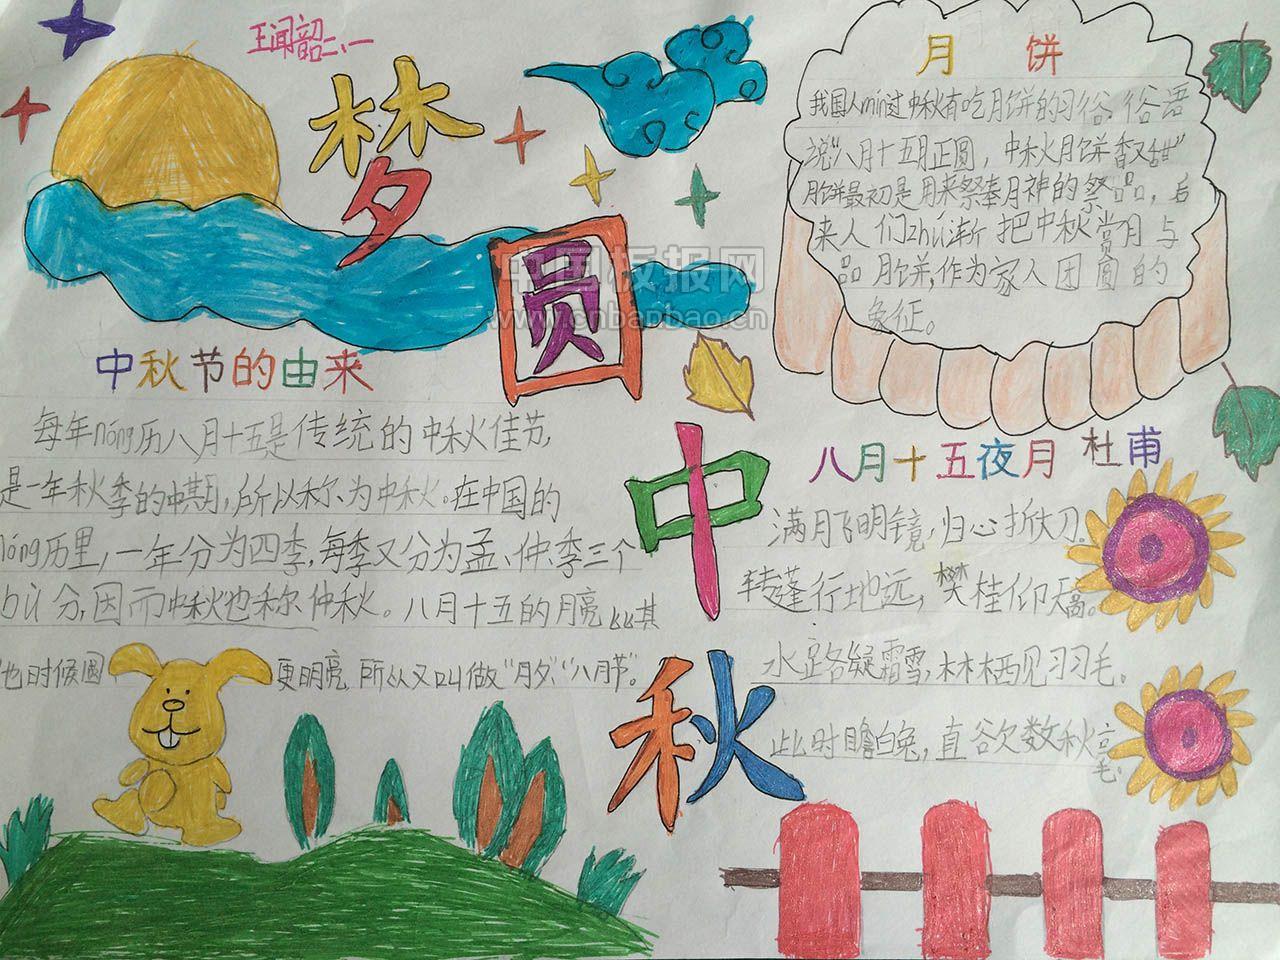 王闻韶二、一
梦
圆
中
秋
中国板报网
www.cnbanbao.cn
中秋节的由来
每年nóng历八月十五是传统的中秋佳节,
是一年秋季的中期,所以称为中秋。在中国的
nóng历里,一年分为四季,每季又分为孟、仲、季三个
bù分,因而中秋也称仲秋。八月十五的月亮比其
他时候圆 更明亮 所以又叫做“月夕”“八月节”。
月饼
我国人mín过中秋有吃月饼的习俗,俗语
说“八月十五月正圆,中秋月饼香又甜”
月饼最初是用来祭奉月神的祭品,后
来人们zhú渐把中秋赏月与
品月饼,作为家人团圆的
象征。
八月十五夜月 杜甫
满月飞明镜,归心折大刀。
转蓬行地远,攀桂仰天高。
水路疑霜雪,林栖见羽毛。
此时瞻白兔,直欲数秋毫。